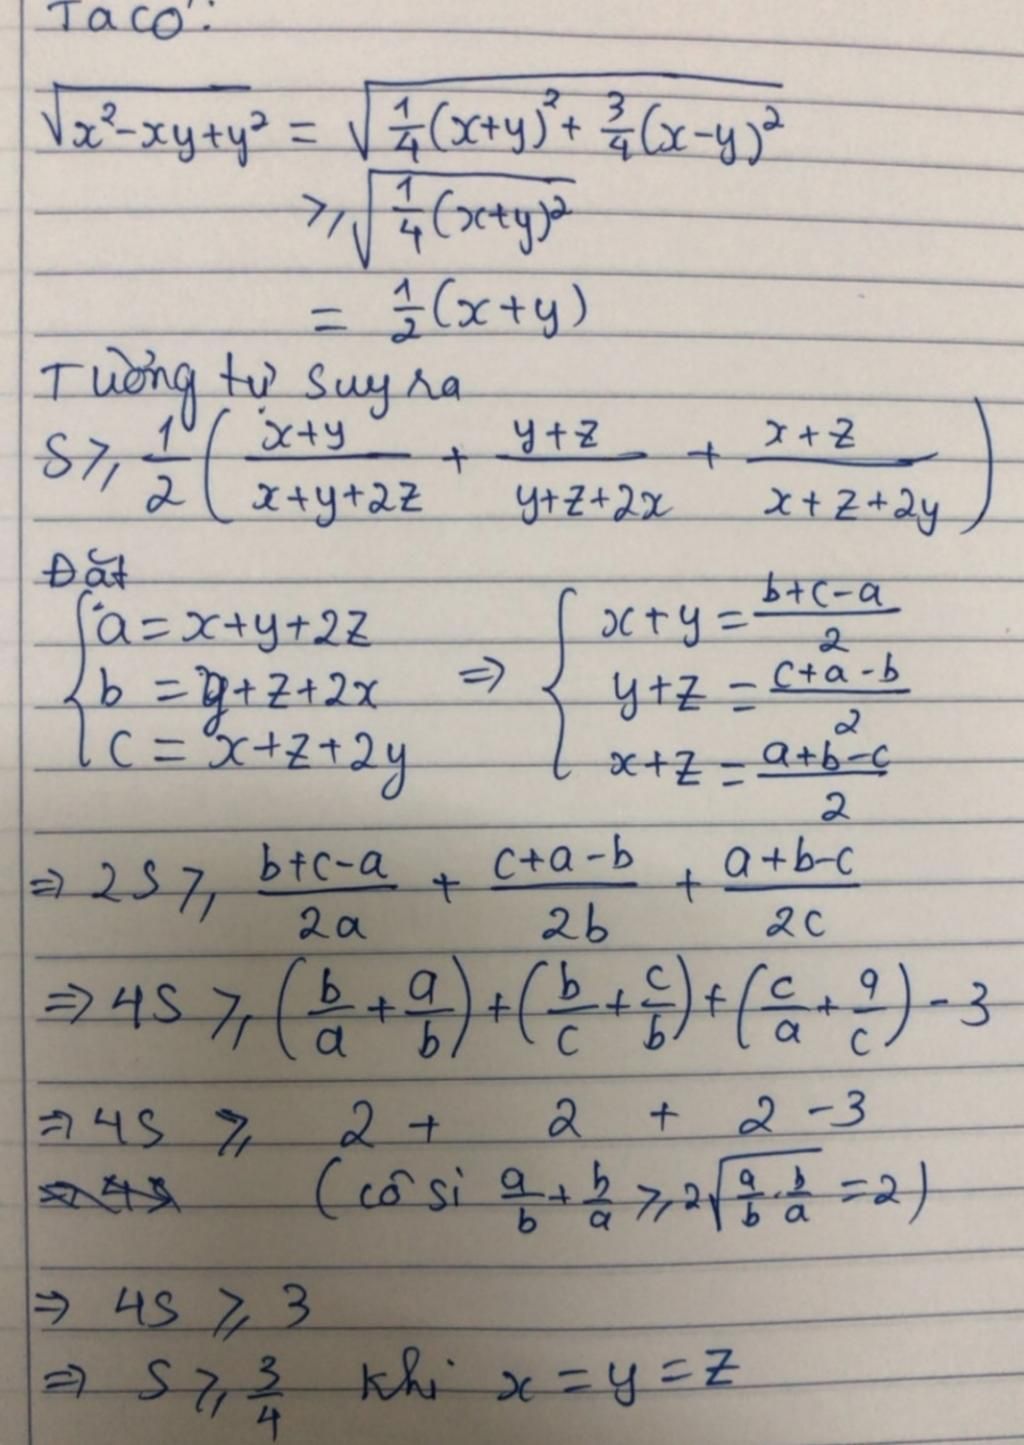 Ta có:
√(x²-xy+y²) = √(1/4(x+y)² + 3/4(x-y)²)
≥ √(1/4(x+y)²)
= 1/2(x+y)
Tương tự suy ra
S ≥ 1/2((x+y)/(x+y+2z) + (y+z)/(y+z+2x) + (x+z)/(x+z+2y))
Đặt
{a = x+y+2z ⇒ {x+y = (b+c-a)/2
b = y+z+2x y+z = (c+a-b)/2
c = x+z+2y x+z = (a+b-c)/2
⇒ 2S ≥ (b+c-a)/2a + (c+a-b)/2b + (a+b-c)/2c
⇒ 4S ≥ (b/a + a/b) + (b/c + c/b) + (c/a + a/c) - 3
⇒ 4S ≥ 2 + 2 + 2 - 3
(cô si a/b + b/a ≥ 2√(a/b . b/a) = 2)
⇒ 4S ≥ 3
⇒ S ≥ 3/4 khi x = y = z